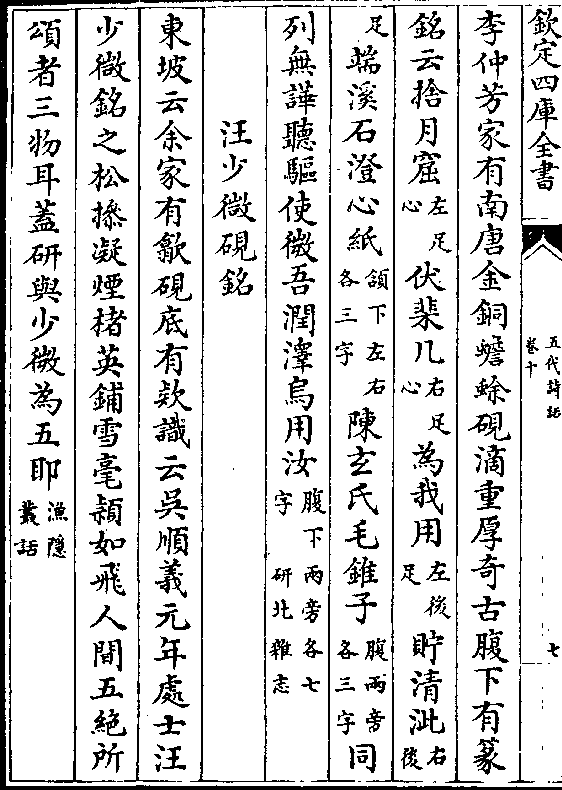 欽定四庫全書
五代詩話
卷十
七
李仲芳家有南唐金銅蟾蜍硯滴重厚奇古腹下有篆
銘云捨月窟左足心伏棐几右足心為我用左後足貯清泚右後
足端溪石澄心紙頷下左右各三字陳玄氏毛錐子腹兩旁各三字同
列無譁聽驅使微吾潤澤烏用汝腹下兩旁各七字研北雜志
汪少微硯銘
東坡云余家有歙硯底有欵識云吳順義元年處士汪
少微銘之松操凝煙楮英鋪雪毫穎如飛人間五絕所
頌者三物耳蓋研與少微為五耶漁隱叢話